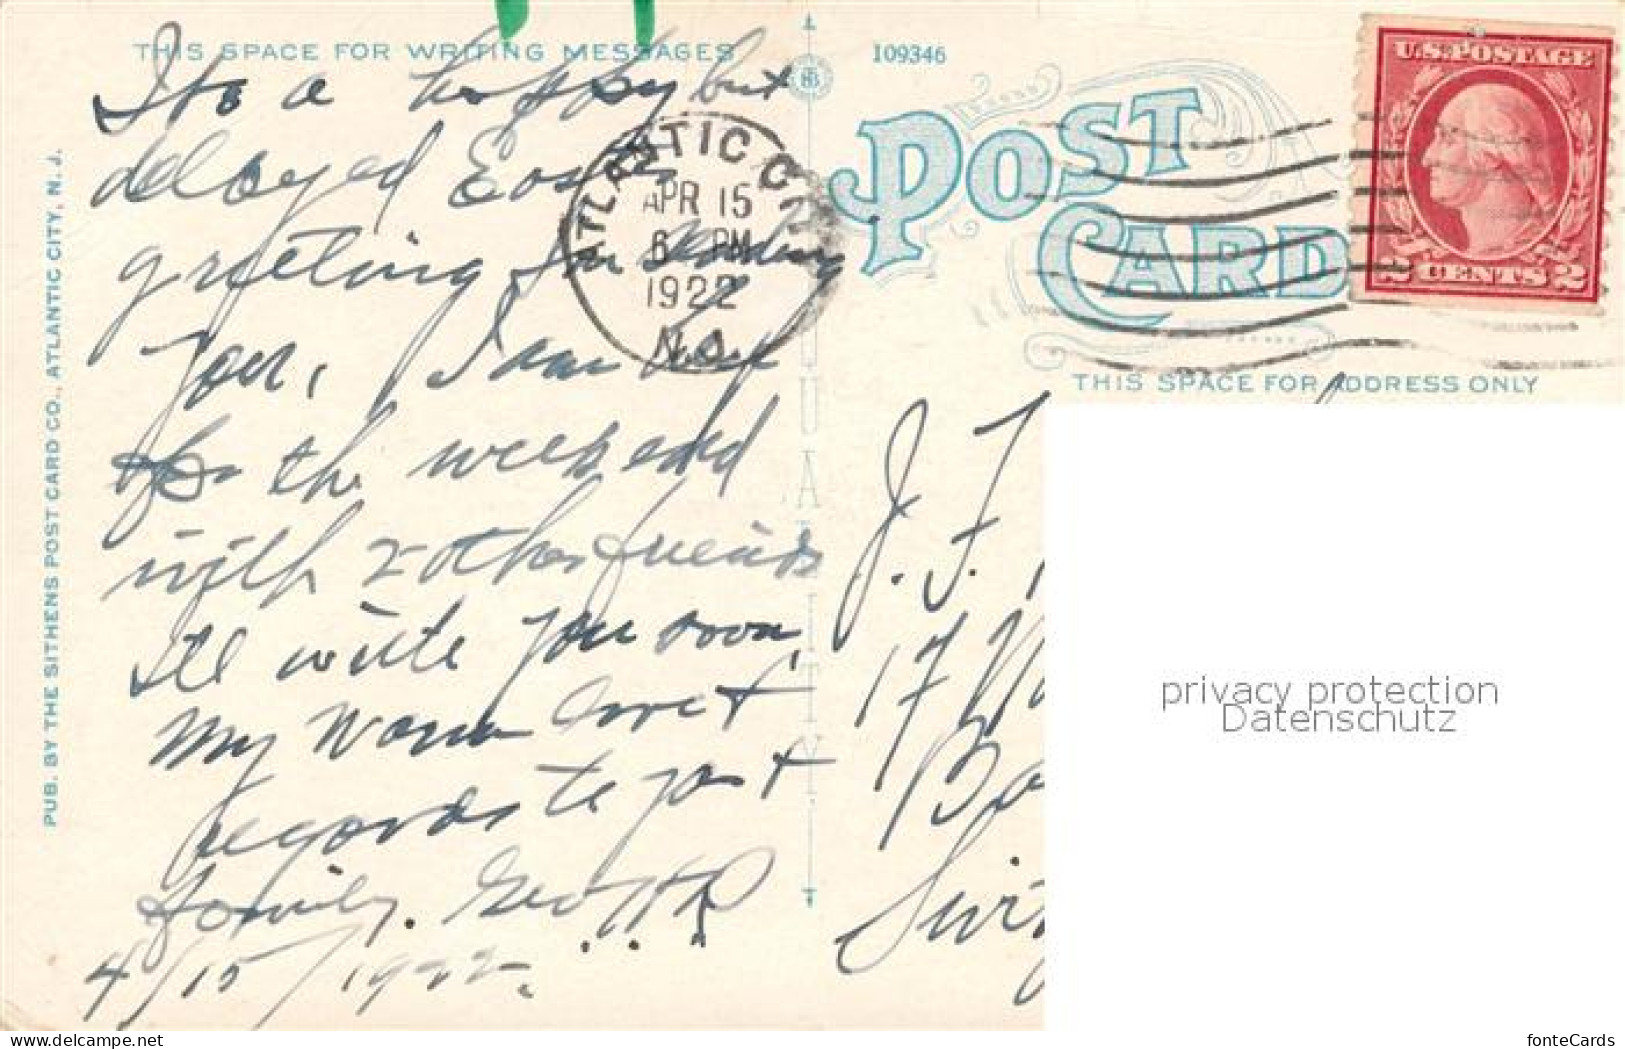 THIS SPACE FOR WRITING MESSAGES
Its a happy but
delayed Easter
greeting I'm sending
you, I am here
for the week end
with 2 other friends
I'll write you soon,
My warmest
regards to you &
family. Geo
4/15/1922.
PUB. BY THE SITHENS POST CARD CO., ATLANTIC CITY, N. J.
ATLANTIC CITY
APR 15
6 PM
1922
N.J.
109346
POST
CARD
U.S. POSTAGE
2 CENTS 2
THIS SPACE FOR ADDRESS ONLY
J. F.
17
Ba
Swit
privacy protection
Datenschutz
www.delcampe.net
fonteCards